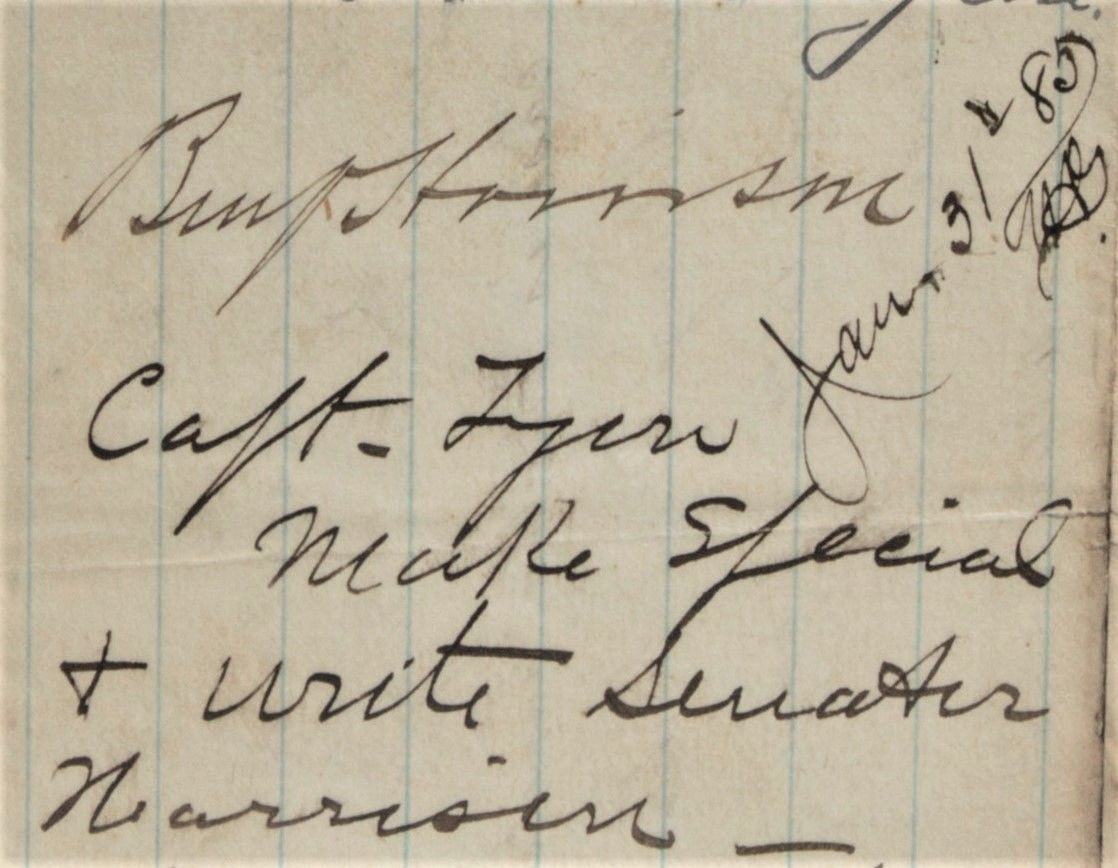 Benj Harrison
Jan. 31st 85
Capt.
Make Special
+ write Senator
Harrison —